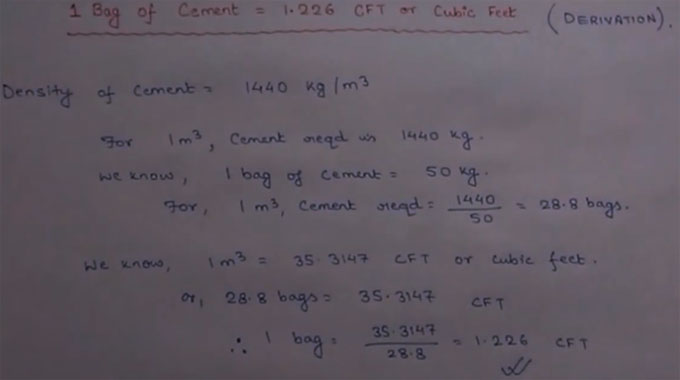 1 Bag of Cement = 1.226 CFT or Cubic Feet (DERIVATION).
Density of cement = 1440 kg/m³
For 1m³, Cement reqd is 1440 kg.
We know, 1 bag of cement = 50 kg.
For, 1 m³, Cement reqd = 1440/50 = 28.8 bags.
We know, 1m³ = 35.3147 CFT or cubic feet.
or, 28.8 bags = 35.3147 CFT
∴ 1 bag = 35.3147/28.8 = 1.226 CFT